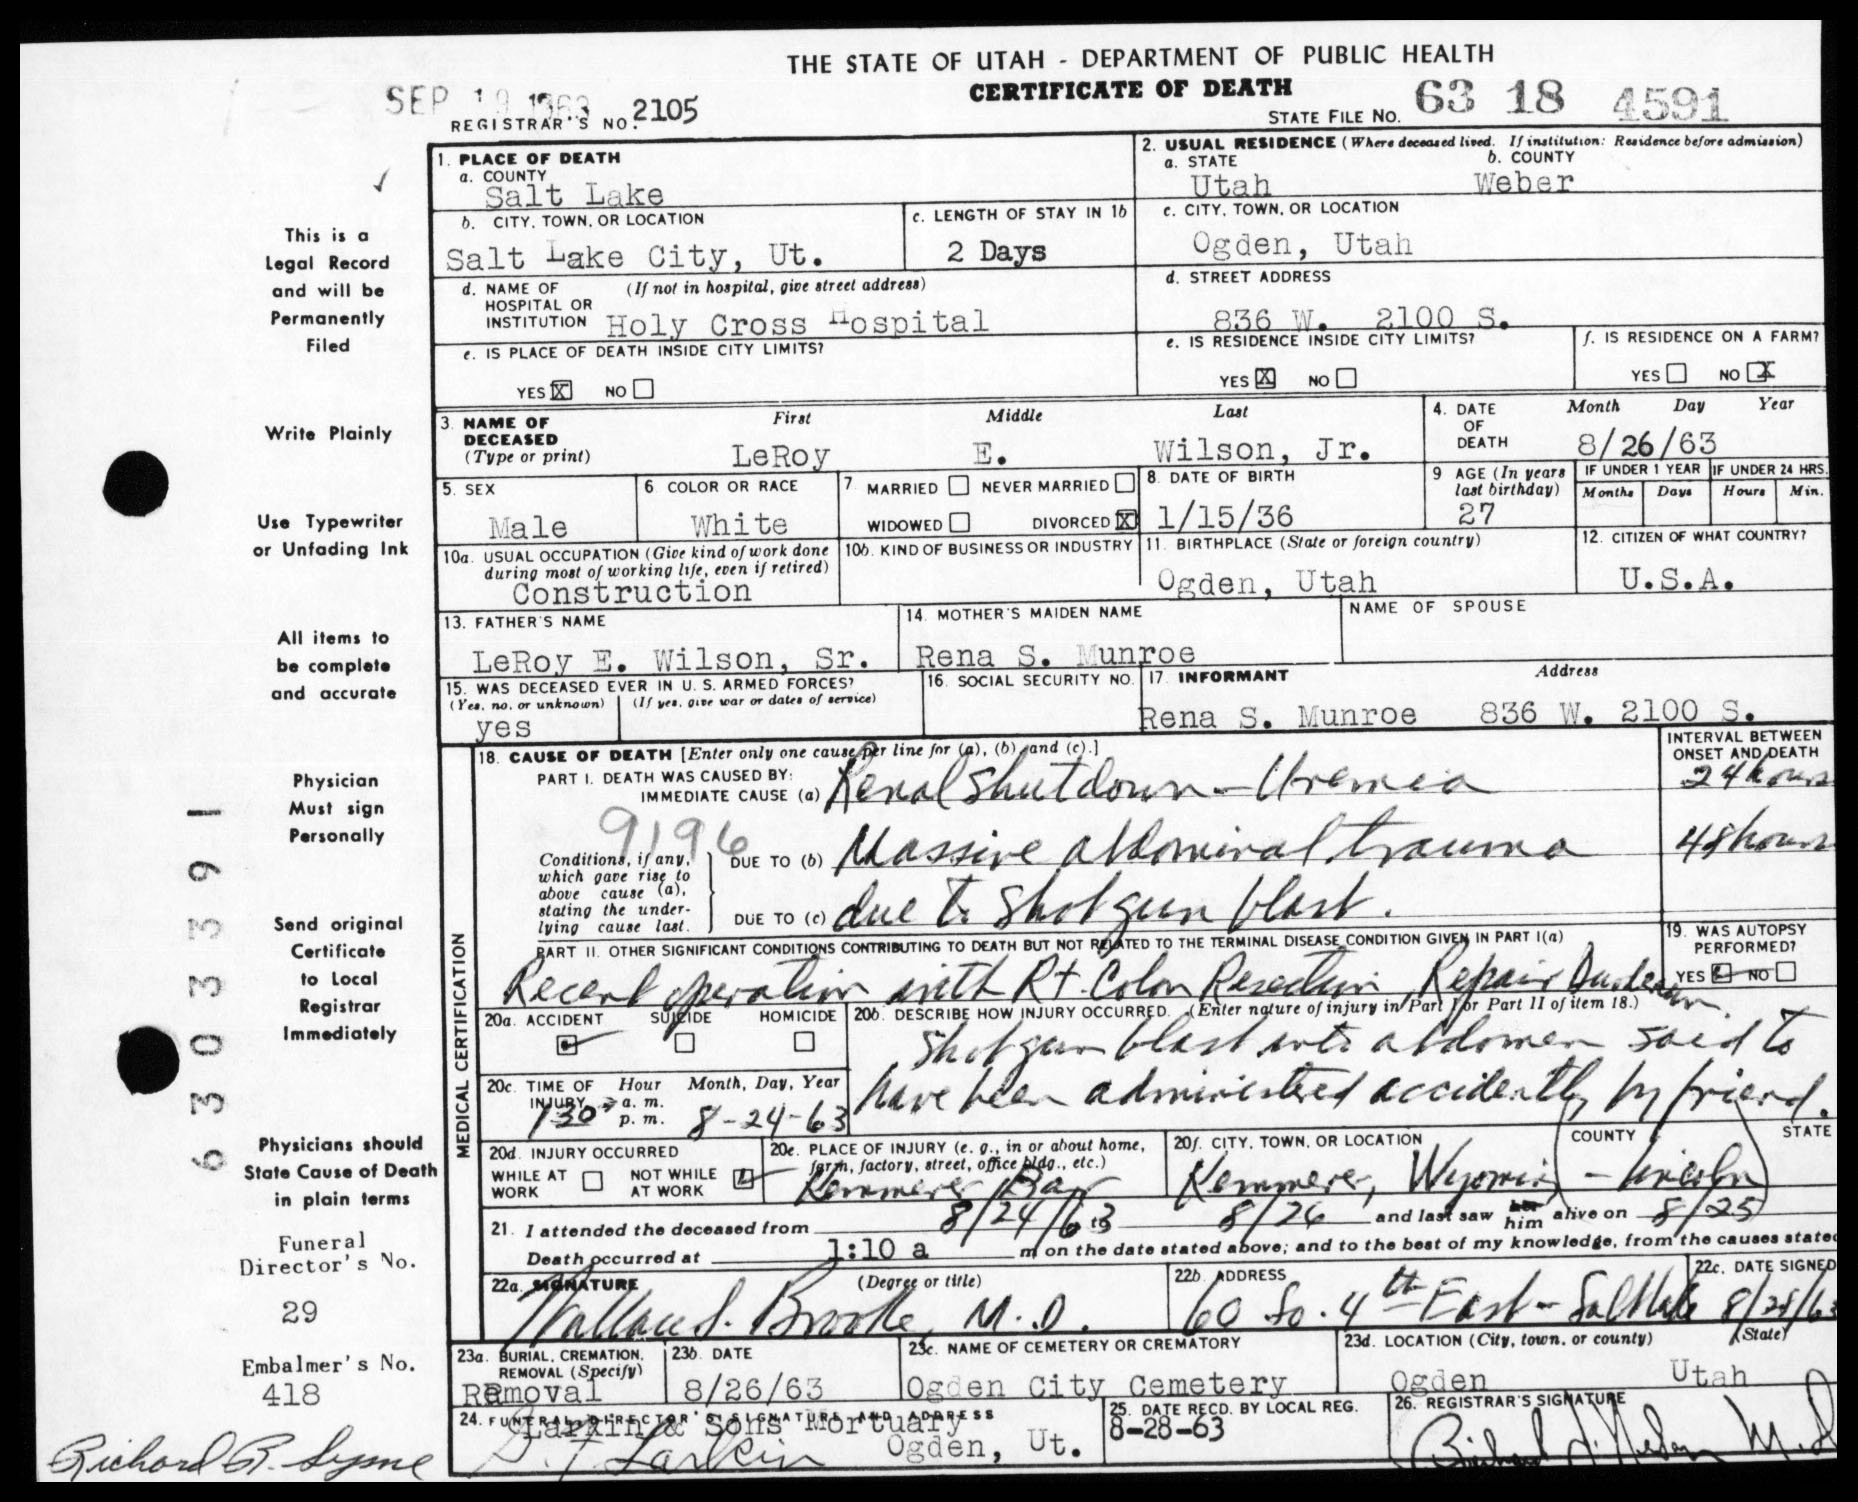 THE STATE OF UTAH - DEPARTMENT OF PUBLIC HEALTH
CERTIFICATE OF DEATH
SEP 19 1963
REGISTRAR'S NO. 2105
STATE FILE NO. 63 18 4591
1. PLACE OF DEATH
a. COUNTY
Salt Lake
2. USUAL RESIDENCE (Where deceased lived. If institution: Residence before admission)
a. STATE b. COUNTY
Utah Weber
b. CITY, TOWN, OR LOCATION
Salt Lake City, Ut.
c. LENGTH OF STAY IN 1b
2 Days
c. CITY, TOWN, OR LOCATION
Ogden, Utah
d. NAME OF HOSPITAL OR INSTITUTION (If not in hospital, give street address)
Holy Cross Hospital
d. STREET ADDRESS
836 W. 2100 S.
e. IS PLACE OF DEATH INSIDE CITY LIMITS?
YES X NO
e. IS RESIDENCE INSIDE CITY LIMITS?
YES X NO
f. IS RESIDENCE ON A FARM?
YES NO X
3. NAME OF DECEASED (Type or print)
First Middle Last
LeRoy E. Wilson, Jr.
4. DATE OF DEATH
Month Day Year
8/26/63
5. SEX
Male
6 COLOR OR RACE
White
7. MARRIED NEVER MARRIED
WIDOWED DIVORCED X
8. DATE OF BIRTH
1/15/36
9 AGE (In years last birthday)
27
IF UNDER 1 YEAR
Months Days
IF UNDER 24 HRS.
Hours Min.
10a. USUAL OCCUPATION (Give kind of work done during most of working life, even if retired)
Construction
10b. KIND OF BUSINESS OR INDUSTRY
11. BIRTHPLACE (State or foreign country)
Ogden, Utah
12. CITIZEN OF WHAT COUNTRY?
U.S.A.
13. FATHER'S NAME
LeRoy E. Wilson, Sr.
14. MOTHER'S MAIDEN NAME
Rena S. Munroe
NAME OF SPOUSE
15. WAS DECEASED EVER IN U. S. ARMED FORCES?
(Yes, no, or unknown) (If yes, give war or dates of service)
yes
16. SOCIAL SECURITY NO.
17. INFORMANT Address
Rena S. Munroe 836 W. 2100 S.
MEDICAL CERTIFICATION
18. CAUSE OF DEATH [Enter only one cause per line for (a), (b), and (c).]
INTERVAL BETWEEN ONSET AND DEATH
PART I. DEATH WAS CAUSED BY:
IMMEDIATE CAUSE (a) Renal Shutdown - Uremia 24 hours
9196
Conditions, if any, which gave rise to above cause (a), stating the underlying cause last.
DUE TO (b) Massive abdominal trauma 48 hours
DUE TO (c) due to shotgun blast.
PART II. OTHER SIGNIFICANT CONDITIONS CONTRIBUTING TO DEATH BUT NOT RELATED TO THE TERMINAL DISEASE CONDITION GIVEN IN PART I(a)
Recent operation with Rt. Colon Resection, Repair Duodenum.
19. WAS AUTOPSY PERFORMED?
YES NO
20a. ACCIDENT SUICIDE HOMICIDE
20b. DESCRIBE HOW INJURY OCCURRED. (Enter nature of injury in Part I or Part II of item 18.)
Shotgun blast into abdomen said to
have been administered accidently by friend.
20c. TIME OF INJURY Hour Month, Day, Year
a. m.
p. m.
130 8-24-63
20d. INJURY OCCURRED
WHILE AT WORK NOT WHILE AT WORK
20e. PLACE OF INJURY (e. g., in or about home, farm, factory, street, office bldg., etc.)
Kemmerer Bar
20f. CITY, TOWN, OR LOCATION COUNTY STATE
Kemmerer, Wyoming - Lincoln
21. I attended the deceased from 8/24/63 to 8/26 and last saw him alive on 8/25
Death occurred at 1:10 a m on the date stated above; and to the best of my knowledge, from the causes stated
22a. SIGNATURE (Degree or title)
Wallace S. Brooke, M.D.
22b. ADDRESS
60 So. 4th East - Salt Lake
22c. DATE SIGNED
8/28/63
23a. BURIAL, CREMATION, REMOVAL (Specify)
Removal
23b. DATE
8/26/63
23c. NAME OF CEMETERY OR CREMATORY
Ogden City Cemetery
23d. LOCATION (City, town, or county) (State)
Ogden Utah
24. FUNERAL DIRECTOR'S SIGNATURE AND ADDRESS
Larkin & Sons Mortuary
Larkin Ogden, Ut.
25. DATE RECD. BY LOCAL REG.
8-28-63
26. REGISTRAR'S SIGNATURE
This is a
Legal Record
and will be
Permanently
Filed
Write Plainly
Use Typewriter
or Unfading Ink
All items to
be complete
and accurate
Physician
Must sign
Personally
Send original
Certificate
to Local
Registrar
Immediately
Physicians should
State Cause of Death
in plain terms
Funeral
Director's No.
29
Embalmer's No.
418
6303391